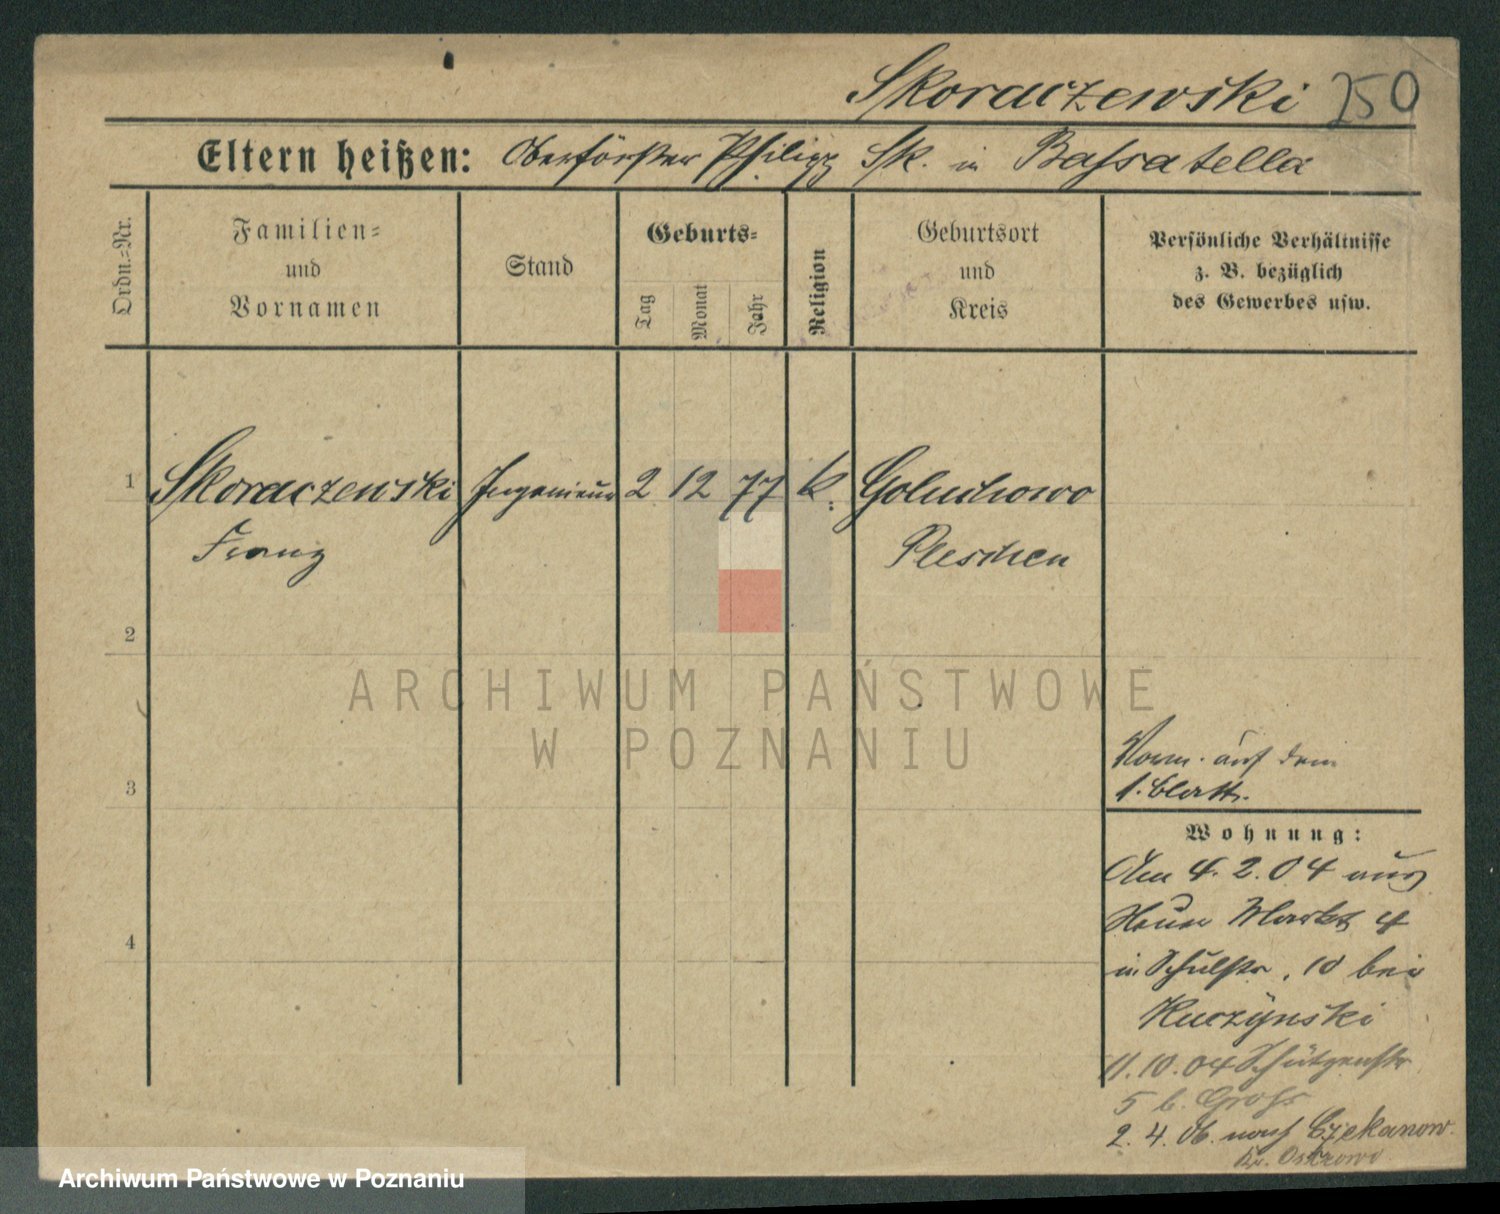 Skoraczewski 250
Eltern heißen: Oberförster Philipp Sk. in Bassatella
Ordn.-Nr.
Familien-
und
Vornamen
Stand
Geburts-
Tag
Monat
Jahr
Religion
Geburtsort
und
Kreis
Persönliche Verhältnisse
z. B. bezüglich
des Gewerbes usw.
1 Skoraczewski Ingenieur 2 12 77 k. Goluchowo
Franz Pleschen
2
ARCHIWUM PAŃSTWOWE
W POZNANIU
3
4
auf dem
1. Blatt.
Wohnung:
Am 4. 2. 04 aus
Neuer Markt 4
in Schulstr. 10 bei
Kuczynski
11. 10. 04 Schützenstr
5 b. Gross
2. 4. 06. nach Czekanow.
Kr. Ostrowo
Archiwum Państwowe w Poznaniu